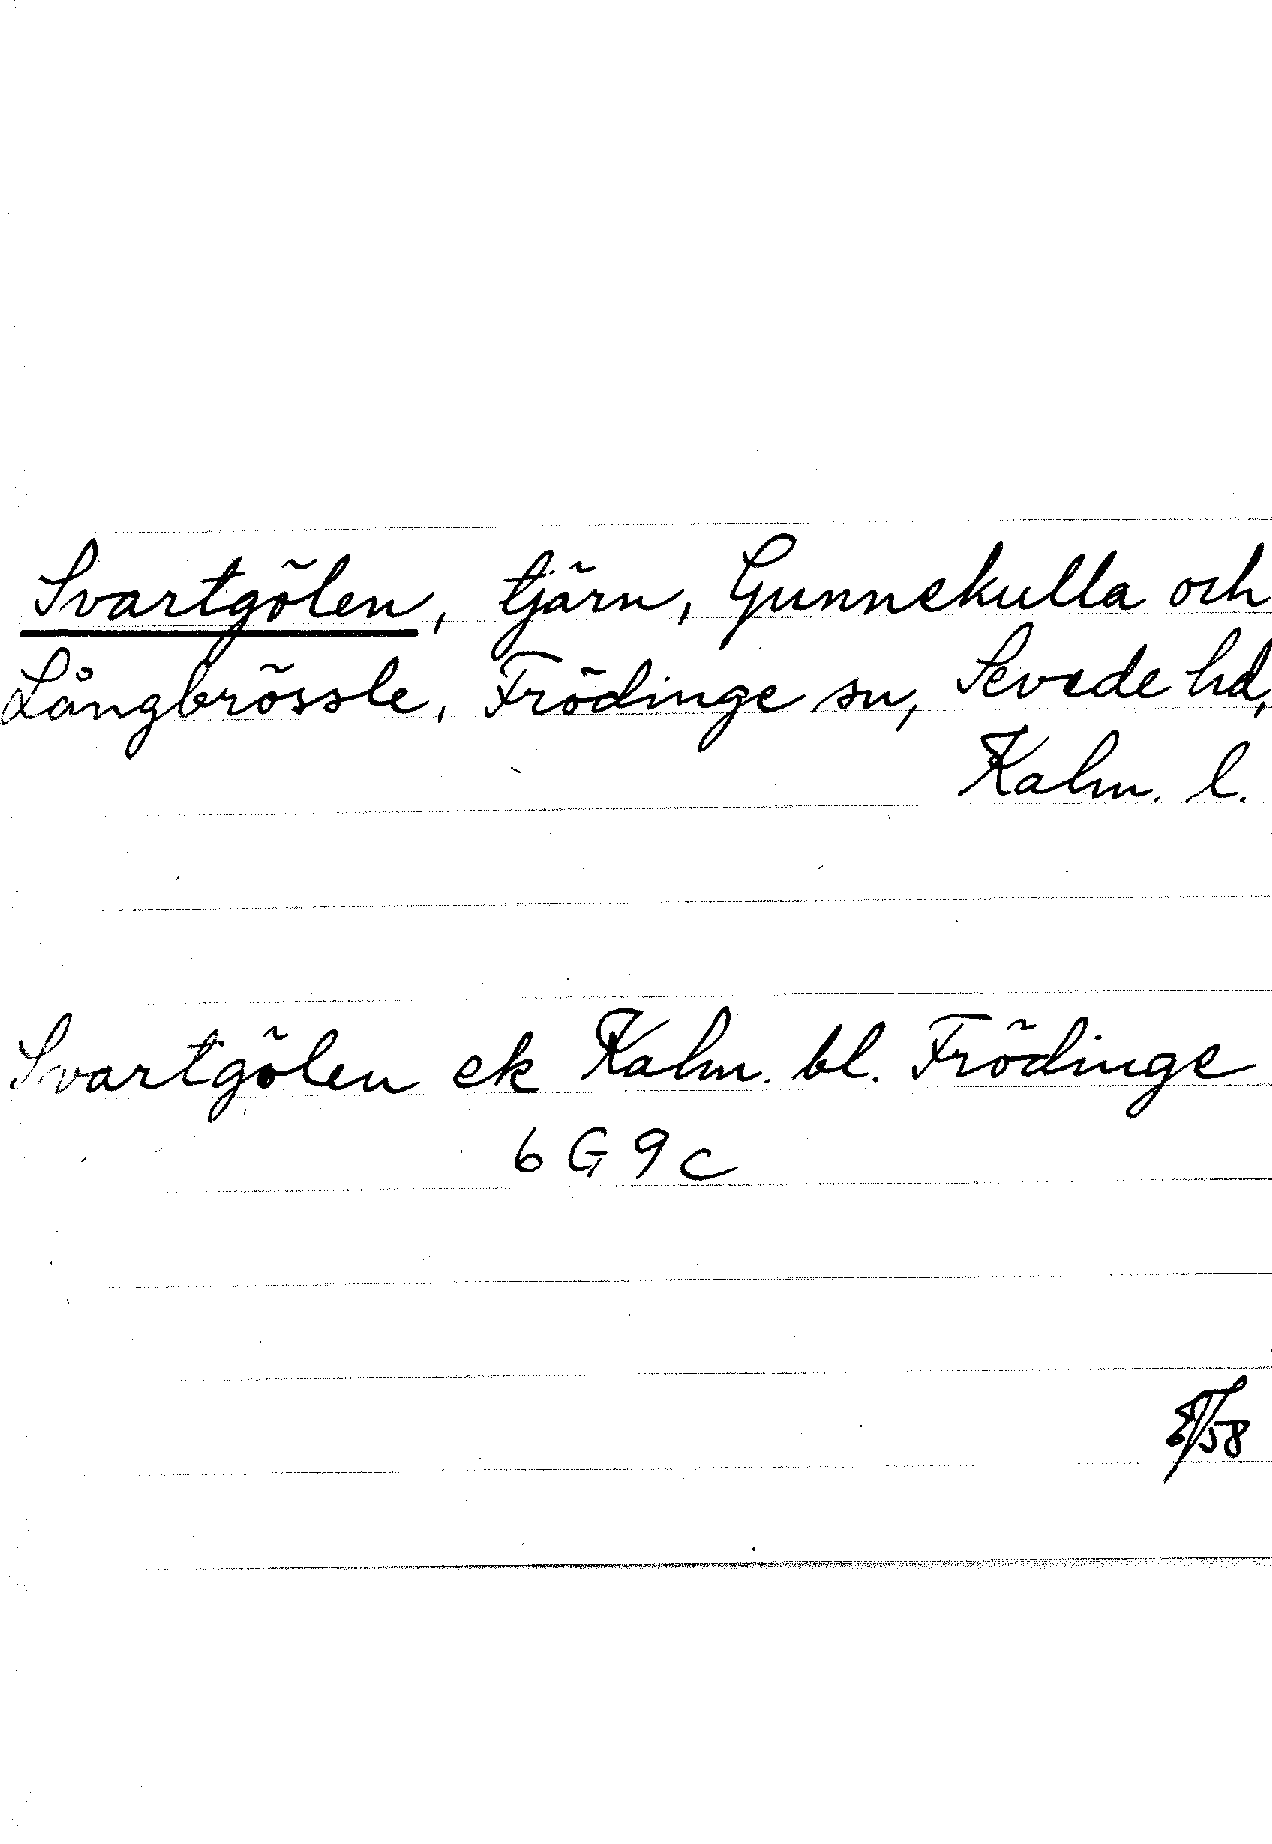 Svartgölen, tjärn, Gunnekulla och
Långbrössle, Frödinge sn, Sevede hd,
Kalm. l.
Svartgölen ek Kalm. bl. Frödinge
6 G 9 c
/58